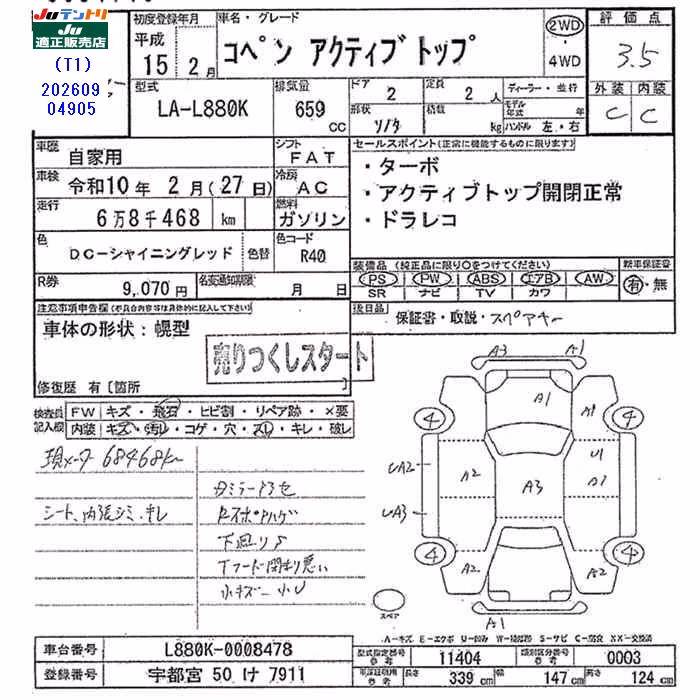 Juテントリ
Ju
適正販売店
(T1)
202609
04905
初度登録年月
平成
15 2月
車名・グレード
コペン アクティブトップ
2WD
4WD
評価点
3.5
外装 内装
C C
型式
LA-L880K
排気量
659
CC
ドア
2
定員
2 人
形状
積載
kg
ディーラー・並行
モデル年式 年
ハンドル 左・右
車歴
自家用
シフト
FAT
車検
令和10年 2月(27日)
冷房
AC
走行
6万8千468 km
燃料
ガソリン
色
DC-シャイニングレッド
色替
色コード
R40
R券
9,070円
名変通知期限
月 日
セールスポイント(正常に機能するものに限ります)
・ターボ
・アクティブトップ開閉正常
・ドラレコ
装備品(純正品に限り〇をつけてください)
新車保証書
PS PW ABS エアB AW
有・無
SR ナビ TV カワ
後日品
保証書・取説・スペアキー
注意事項申告欄(不具合内容等は具体的に記入して下さい)
車体の形状:幌型
売りつくしスタート
修復歴 有〔箇所 〕
検査員記入欄
FW キズ・飛石・ヒビ割・リペア跡・×要
内装 キズ・汚れ・コゲ・穴・スレ・キレ・破レ
現メータ 68468km
シート、内張シミ、キレ
下廻りS
小キズ 小U
A3 A1
A1 A1
4 4
UA2 A2 U1
A3 A1
UA3
4 4
A2 A2
スペア
A1
A-キズ E-エクボ U-凹み W-補修跡 S-サビ C-腐食 XX-交換済
車台番号
L880K-0008478
登録番号
宇都宮 50 け 7911
型式指定番号
参考
11404
類別区分番号
参考
0003
車庫証明用
参考
長さ 339 cm 幅 147 cm 高さ 124 cm